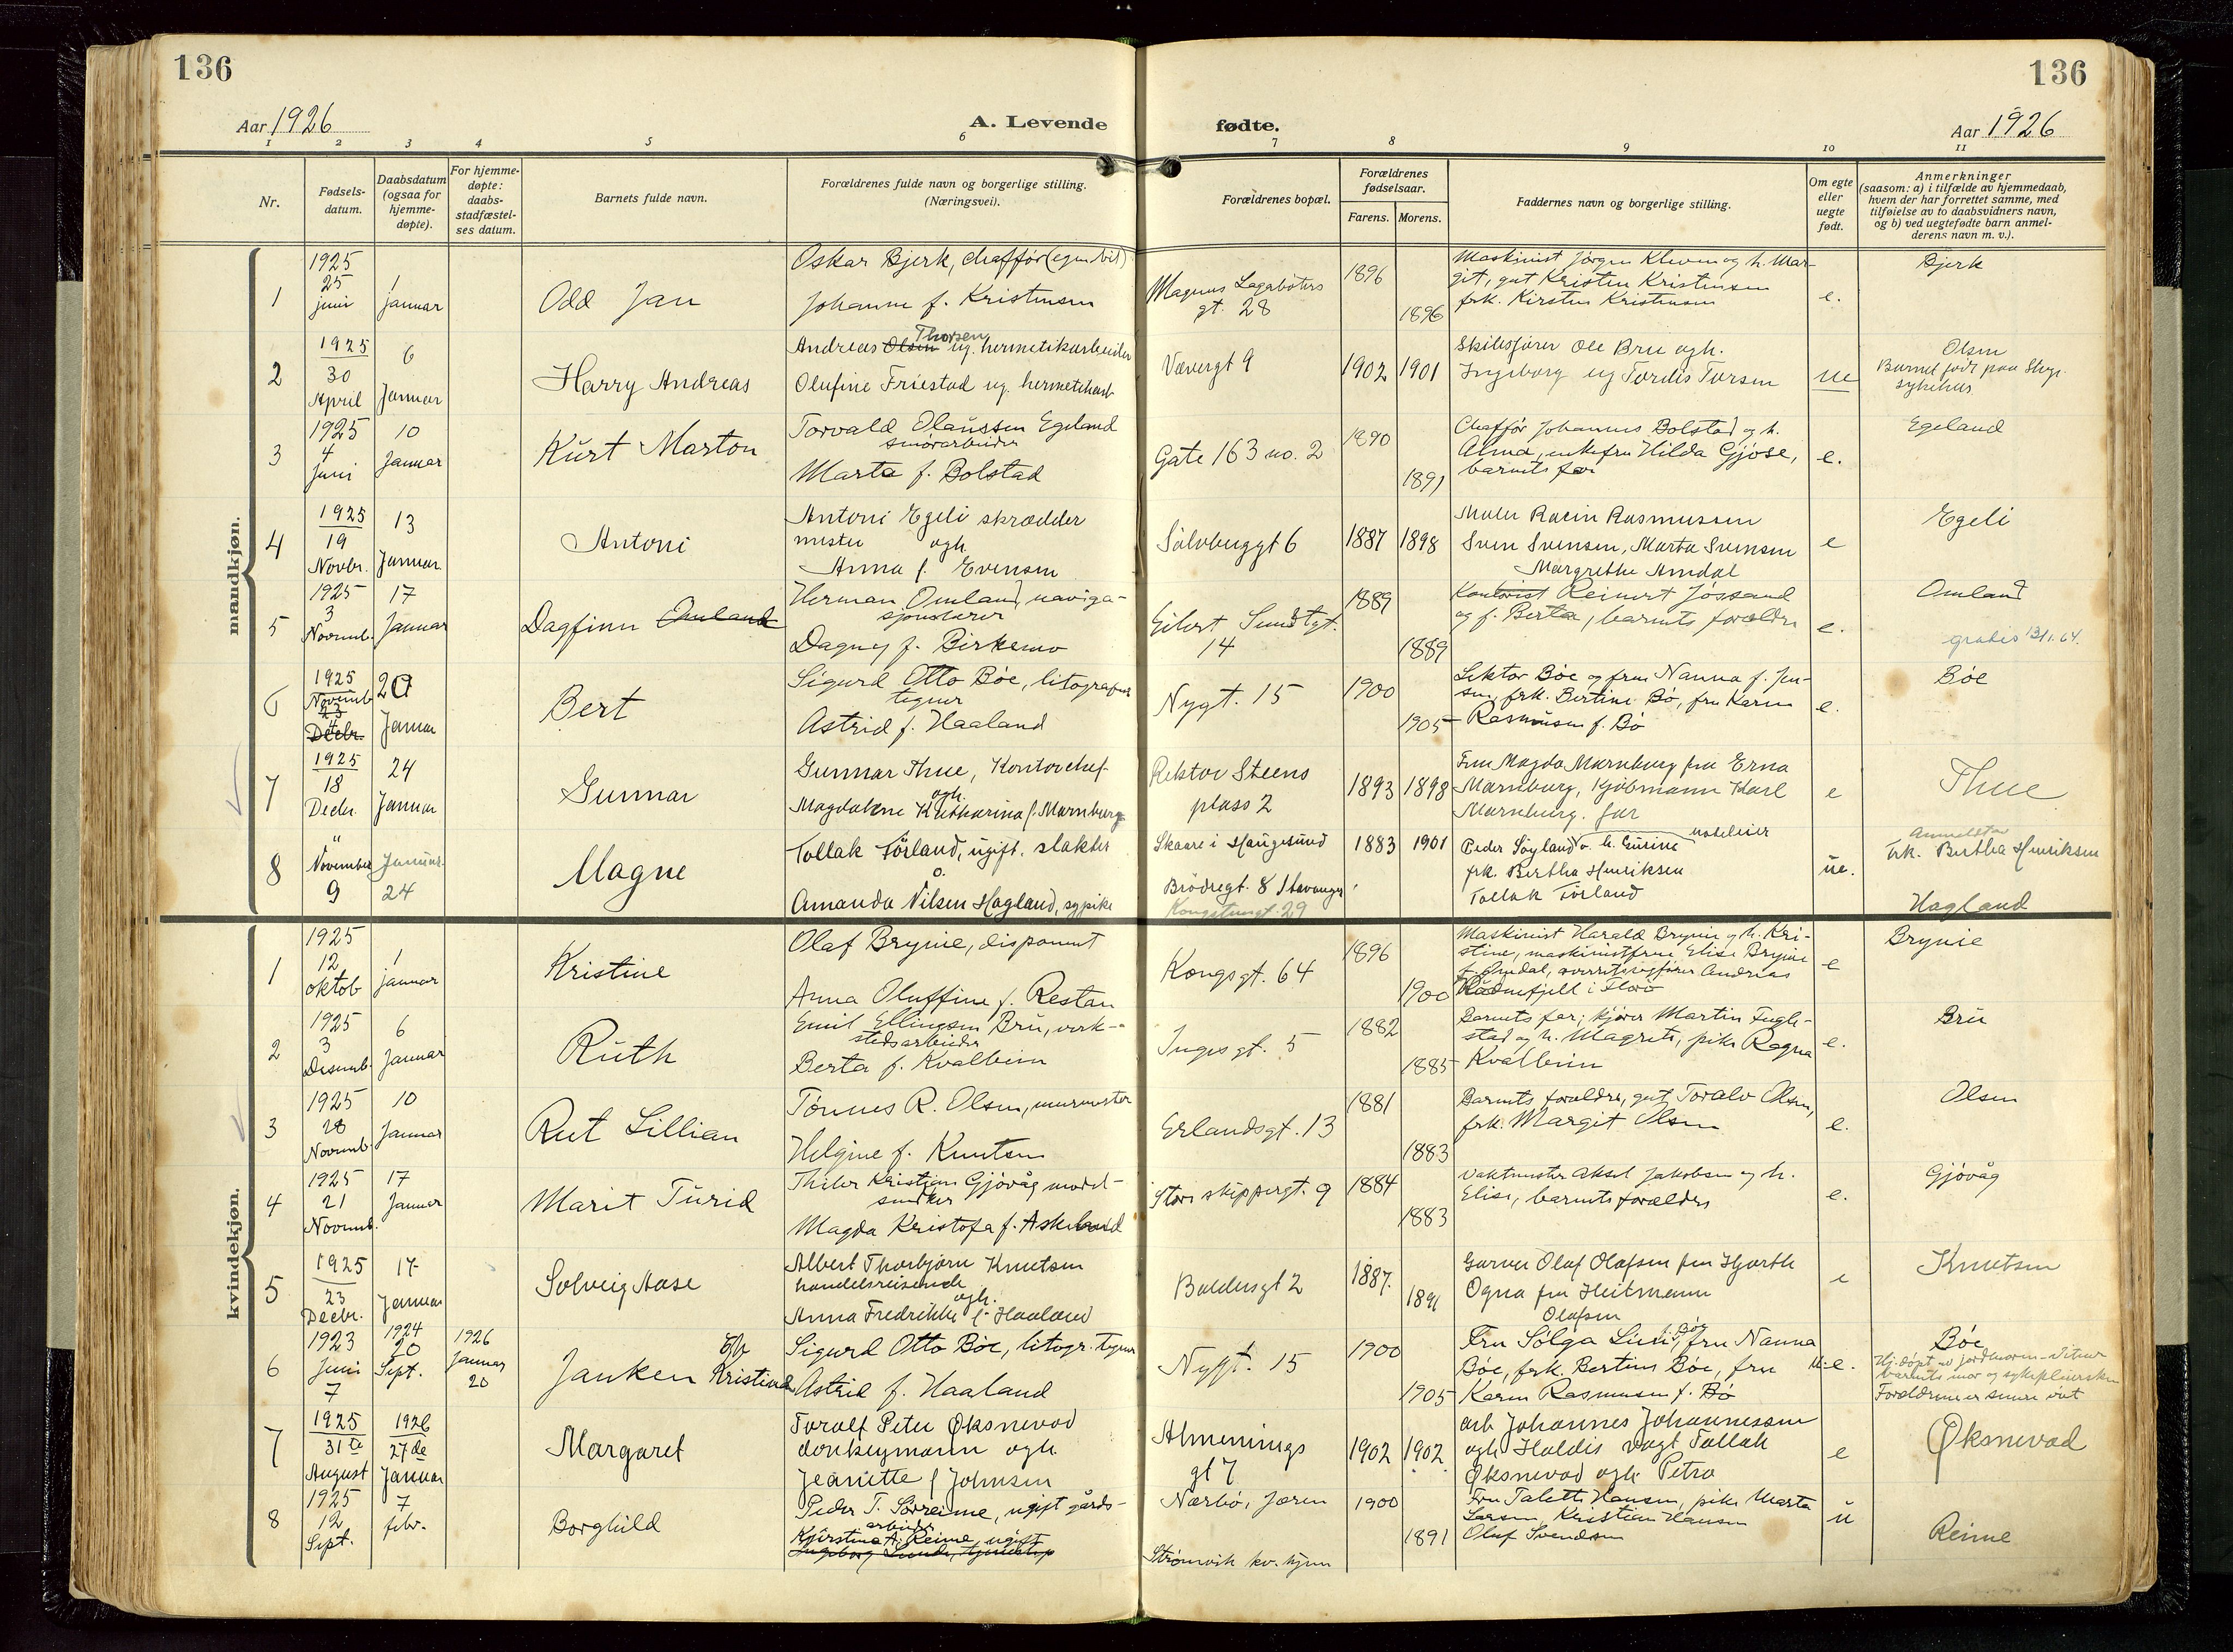 136
136
Aar 1926
A. Levende fødte.
Aar 1926
1 2 3 4 5 6 7 8 9 10 11
Nr.
Fødsels-
datum.
Daabsdatum
(ogsaa for
hjemme-
døpte).
For hjemme-
døpte:
daabs-
stadfæstel-
ses datum.
Barnets fulde navn.
Forældrenes fulde navn og borgerlige stilling.
(Næringsvei).
Forældrenes bopæl.
Forældrenes
fødselsaar.
Farens. Morens.
Faddernes navn og borgerlige stilling.
Om egte
eller
uegte
født.
Anmerkninger
(saasom: a) i tilfælde av hjemmedaab,
hvem der har forrettet samme, med
tilføielse av to daabsvidners navn,
og b) ved uegtefødte barn anmel-
derens navn m. v.).
mandkjøn.
1
1925
25
juni
1
januar
Odd Jan
Oskar Bjerk, chaffør (egen bil)
Johanne f. Kristensen
Magnus Lagabøters
gt. 28
1896
1896
Maskinist Jørgen Kleven og h. Mar-
git, gut Kristen Kristensen
frk. Kirsten Kristensen
e.
Bjerk
2
1925
30
April
6
Januar
Harry Andreas
Thorsen
Andreas Olsen ug. hermetikarbeider
Olufine Friestad ug. hermetikarb
Vævergt 9
1902 1901
Skibsfører Ole Bru ogh.
Ingeborg ug Tordis Torsen
ue
Olsen
Barnet født paa Stvgr.
sykehus
3
1925
4
Juni
10
Januar
Kurt Marton
Torvald Olaussen Egeland
smørarbeider
Marta f. Bolstad
Gate 163 no. 2
1890
1891
Chaffør Johannes Bolstad og h.
Alma, enkefru Hilda Gjøse,
barnets far
e.
Egeland
4
1925
19
Novbr.
13
Januar
Antoni
Antoni Egeli skrædder
mester ogh
Anna f. Evensen
Sølvberggt 6
1887 1898
Maler Racin Rasmussen
Sven Svensen, Marta Svensen
Margrethe Amdal
e
Egeli
5
1925
3
Novemb.
17
Januar
Dagfinn Omland
Herman Omland, naviga-
sjonslærer
Dagny f. Birkemo
Eilert Sundtgt.
14
1889
1889
Kontorist Reinert Jøssand
og f. Berta, barnets forældre
e.
Omland
gratis 13/1.64.
6
1925
Novemb
23
4
Decbr.
20
Januar
Bert
Sigurd Otto Bøe, litografisk
tegner
Astrid f. Haaland
Nygt. 15
1900
1905
Lektor Bøe og fru Nanna f. Jen-
sen, frk. Bertine Bø, fru Karen
Rasmusen f. Bø
e.
Bøe
7
1925
18
Decbr.
24
Januar
Gunnar
Gunnar Thue, Kontorchef
ogh.
Magdalene Katharina f. Marnburg
Rektor Steens
plass 2
1893 1898
Fru Magda Marnburg fru Erna
Marnburg, Kjøbmann Karl
Marnburg. far
e
Thue
8
"
November
9
Januar
24
Magne
Tollak Törland, ugift. slakter
o.
Amanda Nilsen Hagland, sypike
Skaare i Haugesund
Brødregt. 8 Stavanger
Kongstengt. 29
1883 1901
Peder Søyland o. h. Gurine
frk. Bertha Henriksen
Tollak Törland
ue.
Anmeldter
Frk. Bertha Henriksen
Hagland
kvindekjøn.
1
1925
12
oktob
1
januar
Kristine
Olaf Brynie, disponent
Anna Oluffine f. Restan
Kongsgt. 64
1896
1900
Maskinist Harald Brynie og h. Kri-
stine, maskinistfrue Elise Brynie
f. Omdal, overretssagfører Andreas
Raadnefjell i Florø
e
Brynie
2
1925
3
Desemb.
6
Januar
Ruth
Emil Ellingsen Bru, verk-
stedsarbeider
Berta f. Kvalbein
Ingesgt. 5
1882
1885
Barnets far; kjører Martin Fugle-
stad og h. Magrete, pike Ragna
Kvalbein
e.
Bru
3
1925
28
Novemb
10
Januar
Rut Lillian
Tønnes R. Olsen, murmester
Helgine f. Knutsen
Erlandsgt. 13
1881
1883
Barnets forældre, gut Toralv Olsen,
frk. Margit Olsen
e.
Olsen
4
1925
21
Novemb.
17
Januar
Marit Turid
Kristjan Gjøvåg model-
snedker
Magda Kristofa f. Askeland
Store skippergt. 9
1884
1883
Vaktmester Aksel Jakobsen og h.
Elise, barnets forældre
e.
Gjøvåg
5
1925
23
Decbr.
17
Januar
Solveig Aase
Albert Thorbjørn Knutsen
handelsreisende
ogh.
Anna Fredrikke f. Haaland
Baldersgt 2
1887.
1891
Garver Olaf Olafsen fru Hjørth
Ogna fru Heitmann
Olafsen
e
Knutsen
6
1923
Juni
7
1924
20
Sept.
1926
Januar
20
Janken Kristine
Sigurd Otto Bøe, litogr. tegner
Astrid f. Haaland
Nygt. 15
1900
1905
Fru Sølga Lind, f. Bøe, fru Nanna
Bøe, frk. Bertine Bøe, fru
Karen Rasmusen f. Bø
u. e.
Bøe
Hj. døpt av jordmoren
barnets mor og sykepleiersken
Forældrene er senere viet
7
1925
31te
August
1926
27de
Januar
Margaret
Toralf Peter Øksnevad
donkeymann ogh
Jeanette f Johnsen
Almennings
gt 7
1902 1902
arb Johannes Johannessen
ogh Haldis vogt Tollak
Øksnevad ogh Petra
e
Øksnevad
8
1925
12
Sept.
7
febr.
Borghild
Peder T. Sørreime, ugift gårds-
arbeider
Kjirstine A. Reime, ugift
Nærbø, Jæren
Strømvik kv. hjem
1900
1891
Fru Talette Hansen, pike Marta
Larsen, Kristian Hansen
Olaf Svendsen
u
Reime